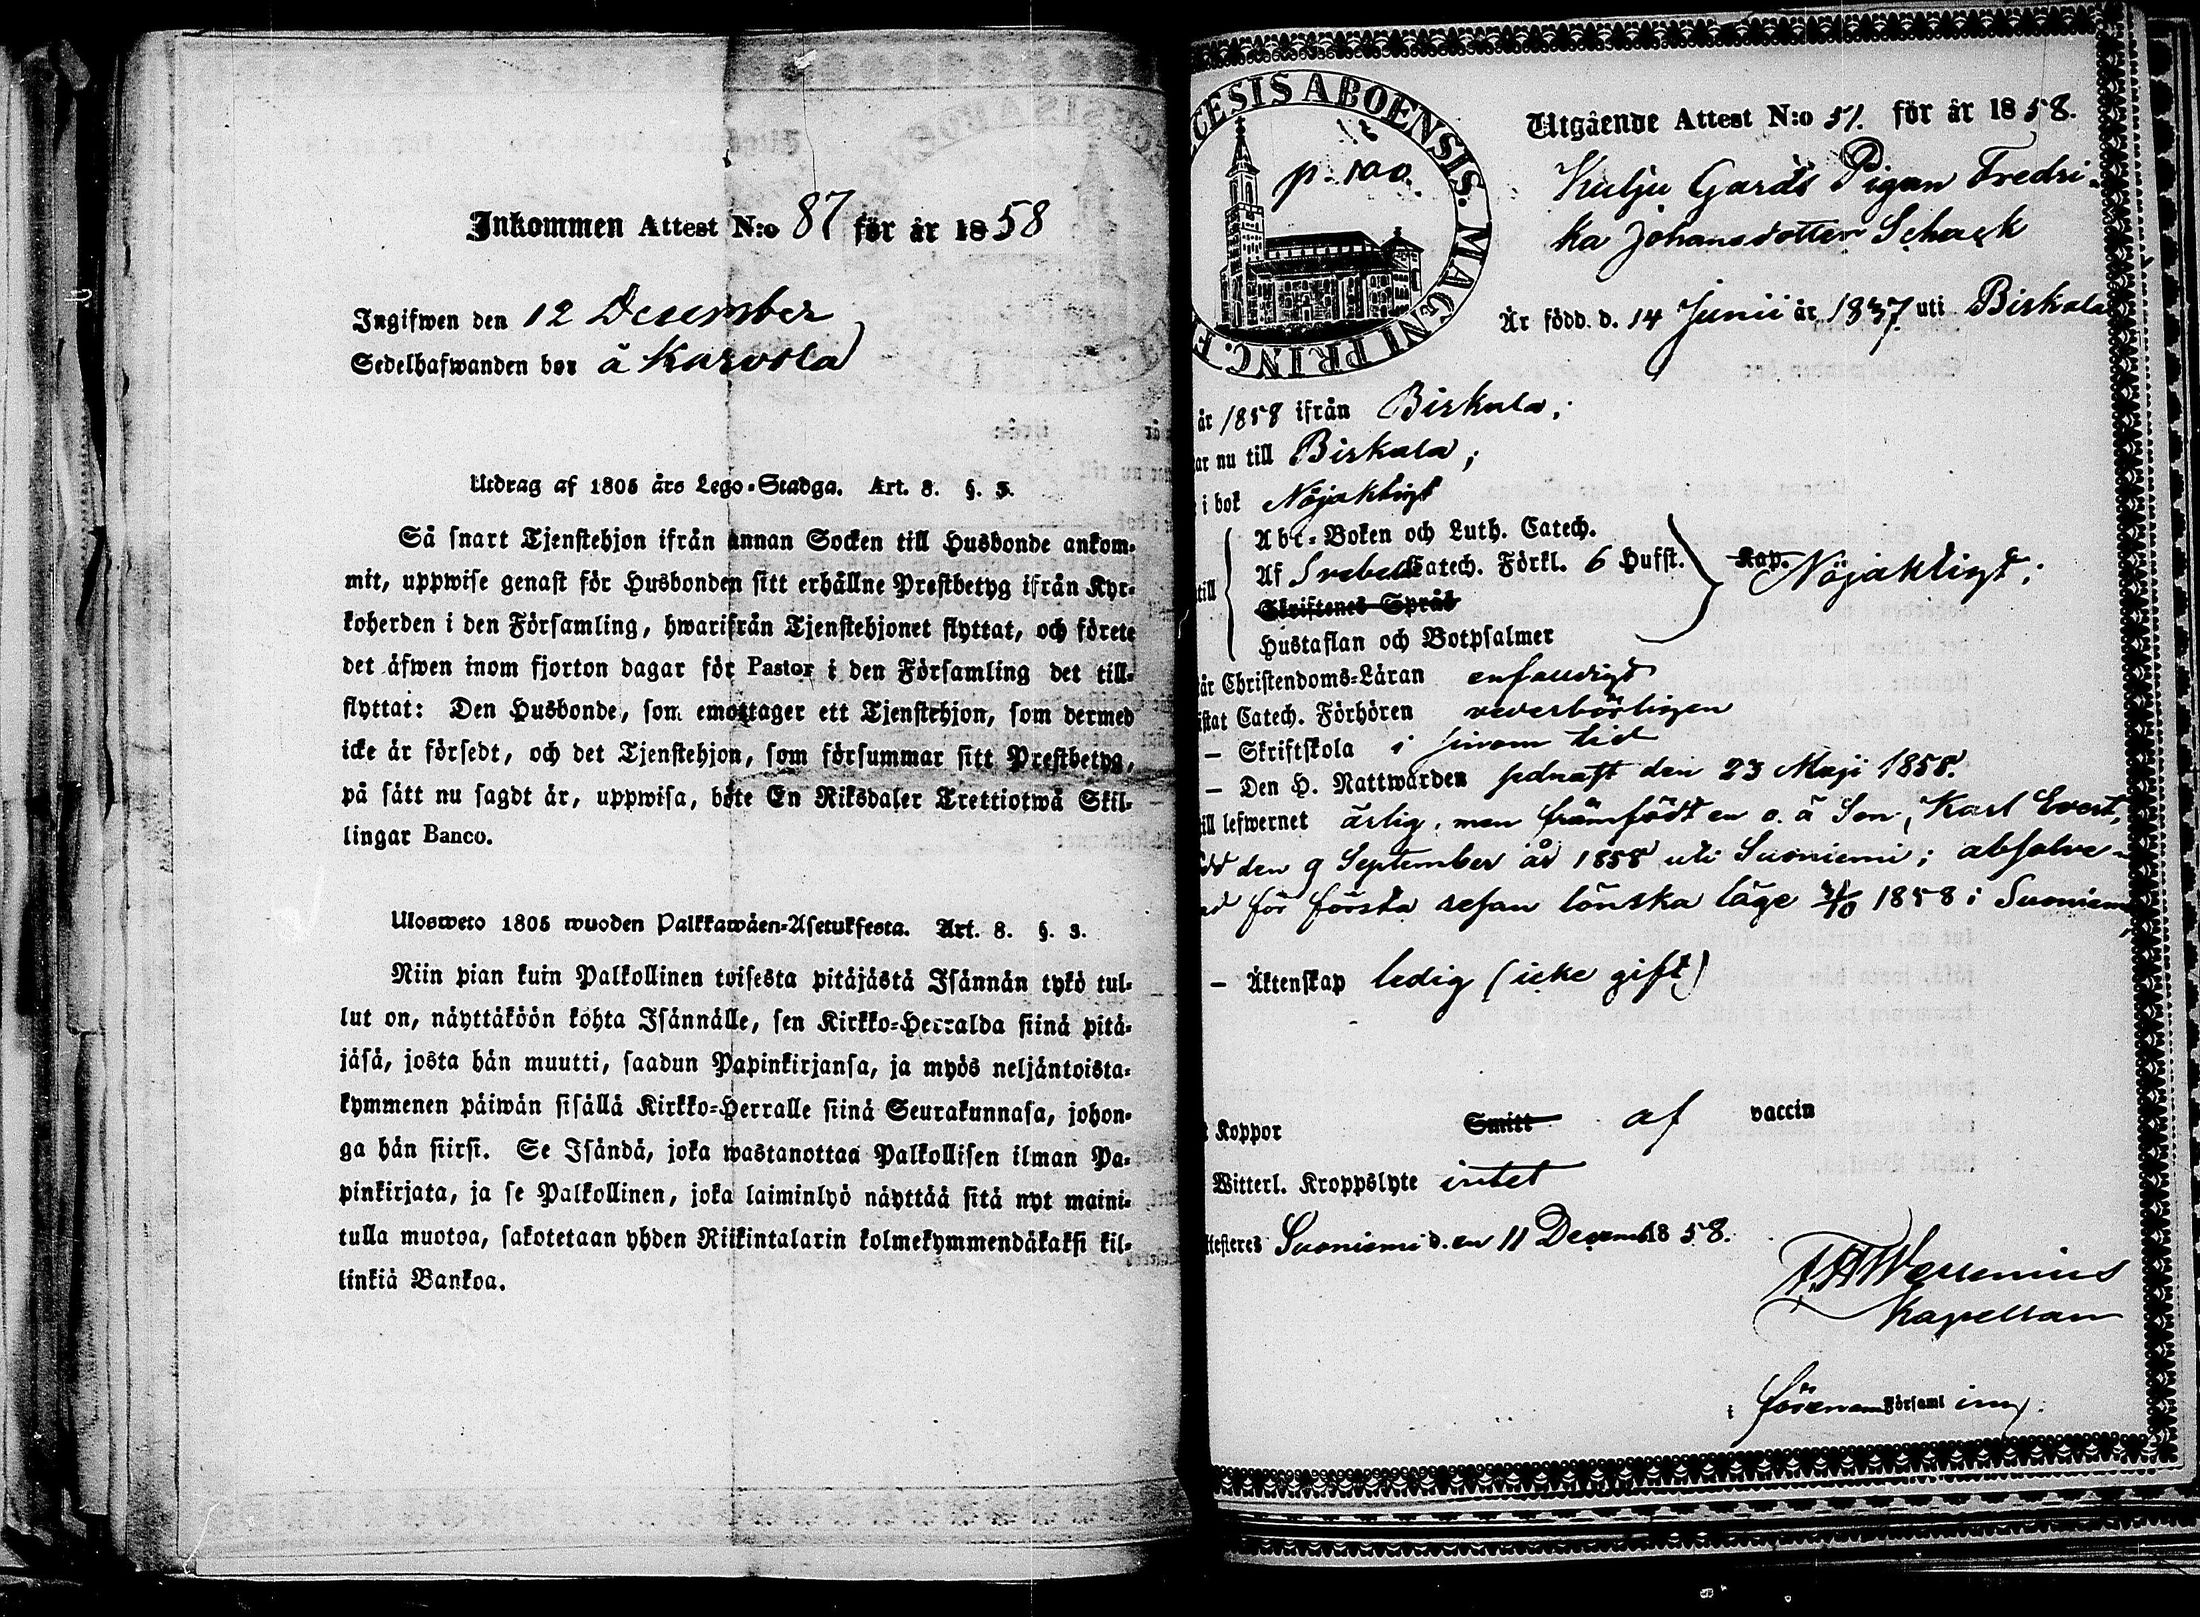 Inkommen Attest N:o 87 för år 1858
Ingifwen den 12 December
Sedelhafwanden bor å Karvola
Utdrag af 1805 års Lego-Stadga. Art. 8. §. 3.
Så snart Tjenstehjon ifrån annan Socken till Husbonde ankom-
mit, uppwise genast för Husbonden sitt erhållne Prestbetyg ifrån Kyr-
koherden i den Församling, hwarifrån Tjenstehjonet flyttat, och förete
det äfwen inom fjorton dagar för Pastor i den Församling det till-
flyttat: Den Husbonde, som emottager ett Tjenstehjon, som dermed
icke är försedt, och det Tjenstehjon, som försummar sitt Prestbetyg,
på sätt nu sagdt är, uppwisa, böte En Riksdaler Trettiotwå Skil-
lingar Banco.
Ulosweto 1805 wuoden Palkkawäen-Asetuksesta. Art. 8. §. 3.
Niin pian kuin Palkollinen toisesta pitäjästä Isännän tykö tul-
lut on, näyttäköön kohta Isännälle, sen Kirkko-Herralda siinä pitä-
jäsä, josta hän muutti, saadun Papinkirjansa, ja myös neljäntoista-
kymmenen päiwän sisällä Kirkko-Herralle siinä Seurakunnasa, johon-
ga hän siirsi. Se Isändä, joka wastanottaa Palkollisen ilman Pa-
pinkirjata, ja se Palkollinen, joka laiminlyö näyttää sitä nyt maini-
tulla muotoa, sakotetaan yhden Riikintalarin kolmekymmendäkaksi kil-
linkiä Bankoa.
CESIS ABOENSIS. MAGNI PRINC. F
p. 100.
Utgående Attest N:o 51. för år 1858.
Kulju Gårds Pigan Fredri-
ka Johansdotter Schack
Är född. d. 14 Junii år 1837. uti Birkala
år 1858 ifrån Birkala;
ar nu till Birkala;
i bok Nöjaktigt
Abc-Boken och Luth. Catech.
till Af Svebelii Catech. Förkl. 6 Hufst. Kap. Nöjaktigt;
Skriftenes Språk
Hustaflan och Botpsalmer
är Christendoms-Läran enfaldigt
istat Catech. Förhören vederbörligen
– Skriftskola i sinom tid
– Den H. Nattwarden sednast den 23 Maji 1858.
ill lefwernet ärlig, men framfödt en o. ä Son, Karl Evert,
den 9 September år 1858 uti Suoniemi; absolve-
ad för första resan lönska läge 31/10 1858 i Suoniemi
– Äktenskap ledig (icke gift)
Koppor Smitt af vaccin
Witterl. Kroppslyte intet
ttesteres Suoniemi d. en 11 Decemb. 1858.
Kapellan
i förenämn Församl ing.